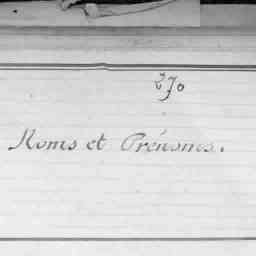 270
Noms et Prénoms.